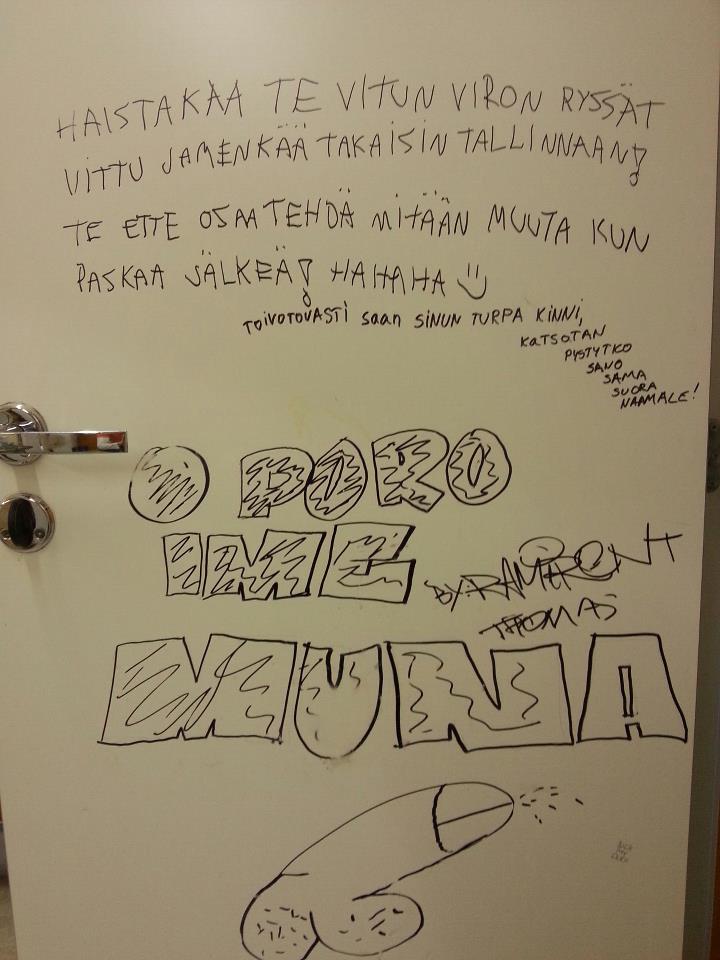 HAISTAKAA TE VITUN VIRON RYSSÄT
VITTU JAMENKÄÄ TAKAISIN TALLINNAAN!
TE ETTE OSAA TEHDÄ MITÄÄN MUUTA KUN
PASKAA JÄLKEÄ! HAHAHA
TOIVOTOVASTI saan SINUN TURPA KINNI,
KATSOTAN
PYSTYTKO
SANO
SAMA
SUORA
NAAMALE!
O PORO
IME
BY:
THOMAS
MUNA